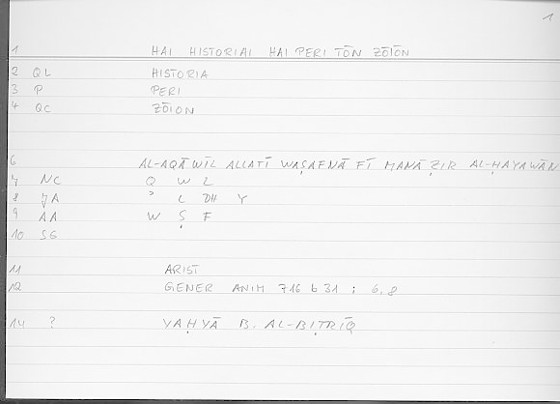 1
1 HAI HISTORIAI HAI PERI TŌN ZŌIŌN
2 QL HISTORIA
3 P PERI
4 QC ZŌION
6 AL-AQĀWĪL ALLATĪ WAṢAFNĀ FĪ MANĀẒIR AL-ḤAYAWĀN
7 NC Q W L
8 JA ʾ L DH Y
9 AA W Ṣ F
10 SG
11 ARIST
12 GENER ANIM 716 b 31 ; 6.8
14 ? YAḤYĀ B. AL-BIṬRĪQ